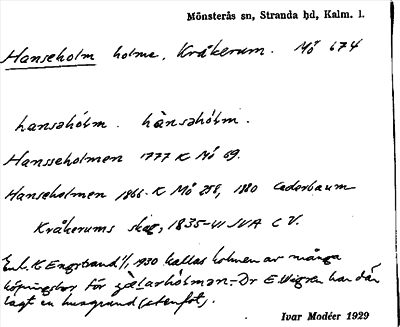 Mönsterås sn, Stranda hd, Kalm. l.
Hanseholm holme, Kråkerum. Mö 674
hansəhólm. hànsəhólm.
Hansseholmen 1777 K Mö 69.
Hanseholmen 1866 K Mö 258, 1880 Cederbaum
Kråkerums skog, 1835-41 JVA C V.
Enl. K Engstrand 1930 kallas holmen av många
köpingsbor för Dr E Wigren har där
lagt en husgrund (stenfot).
Ivar Modéer 1929